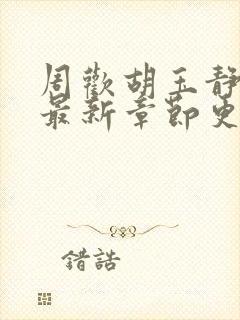 周歡胡玉靜
最新章節更
錯誥